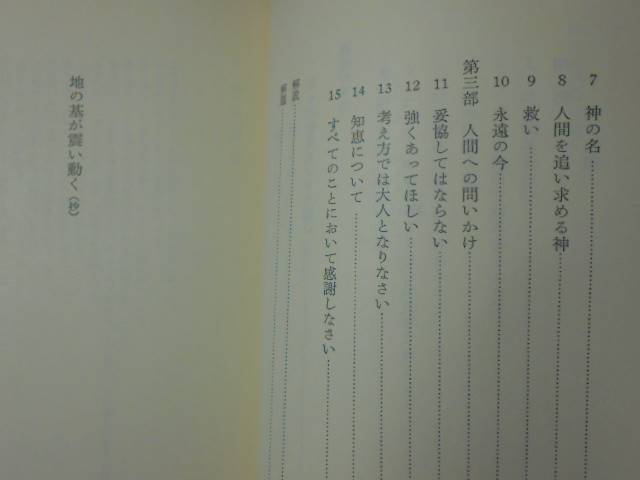 7 神の名
8 人間を追い求める神
9 救い
10 永遠の今
第三部 人間への問いかけ
11 妥協してはならない
12 強くあってほしい
13 考え方では大人となりなさい
14 知恵について
15 すべてのことにおいて感謝しなさい
解説
解題
地の基が震い動く（抄）